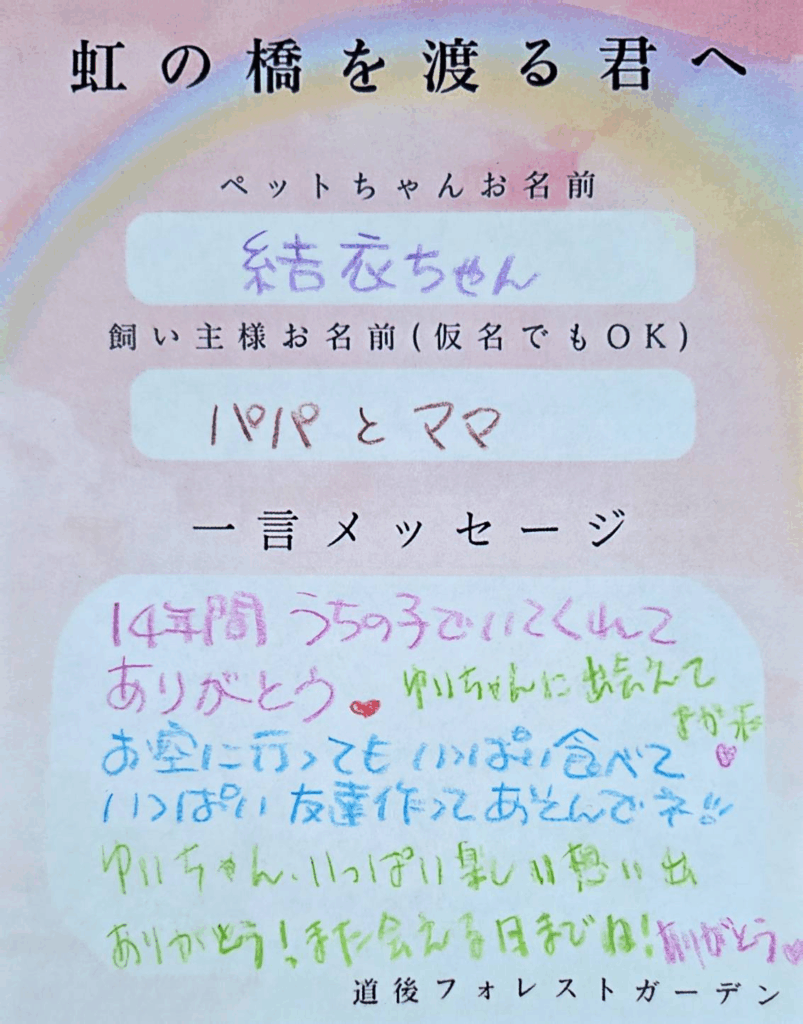 虹の橋を渡る君へ
ペットちゃんお名前
結衣ちゃん
飼い主様お名前(仮名でもOK)
パパとママ
一言メッセージ
14年間 うちの子でいてくれて
ありがとう♥ ゆいちゃんに出会えて
お空に行っても いっぱい食べて
いっぱい 友達作って あそんでネ!!
ゆいちゃん、いっぱい楽しい想い出
ありがとう!また会える日までね!ありがとう♡
道後フォレストガーデン